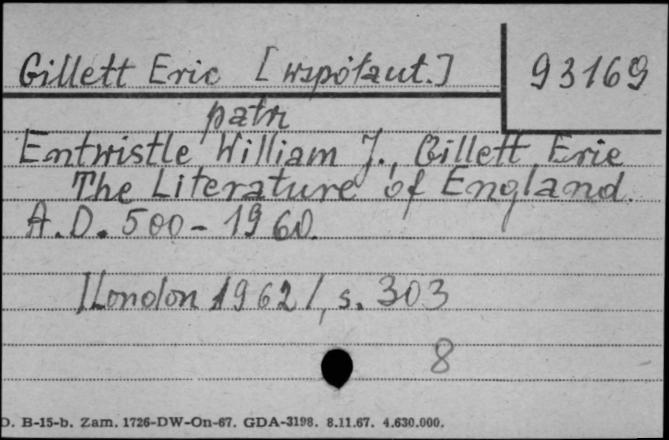 Gillett Eric [współaut.] 93169
patrz
Entwistle William J., Gillett Eric
The Literature of England.
A.D. 500-1960.
/London 1962/, s. 303
8
D. B-15-b. Zam. 1726-DW-On-67. GDA-3198. 8.11.67. 4.630.000.